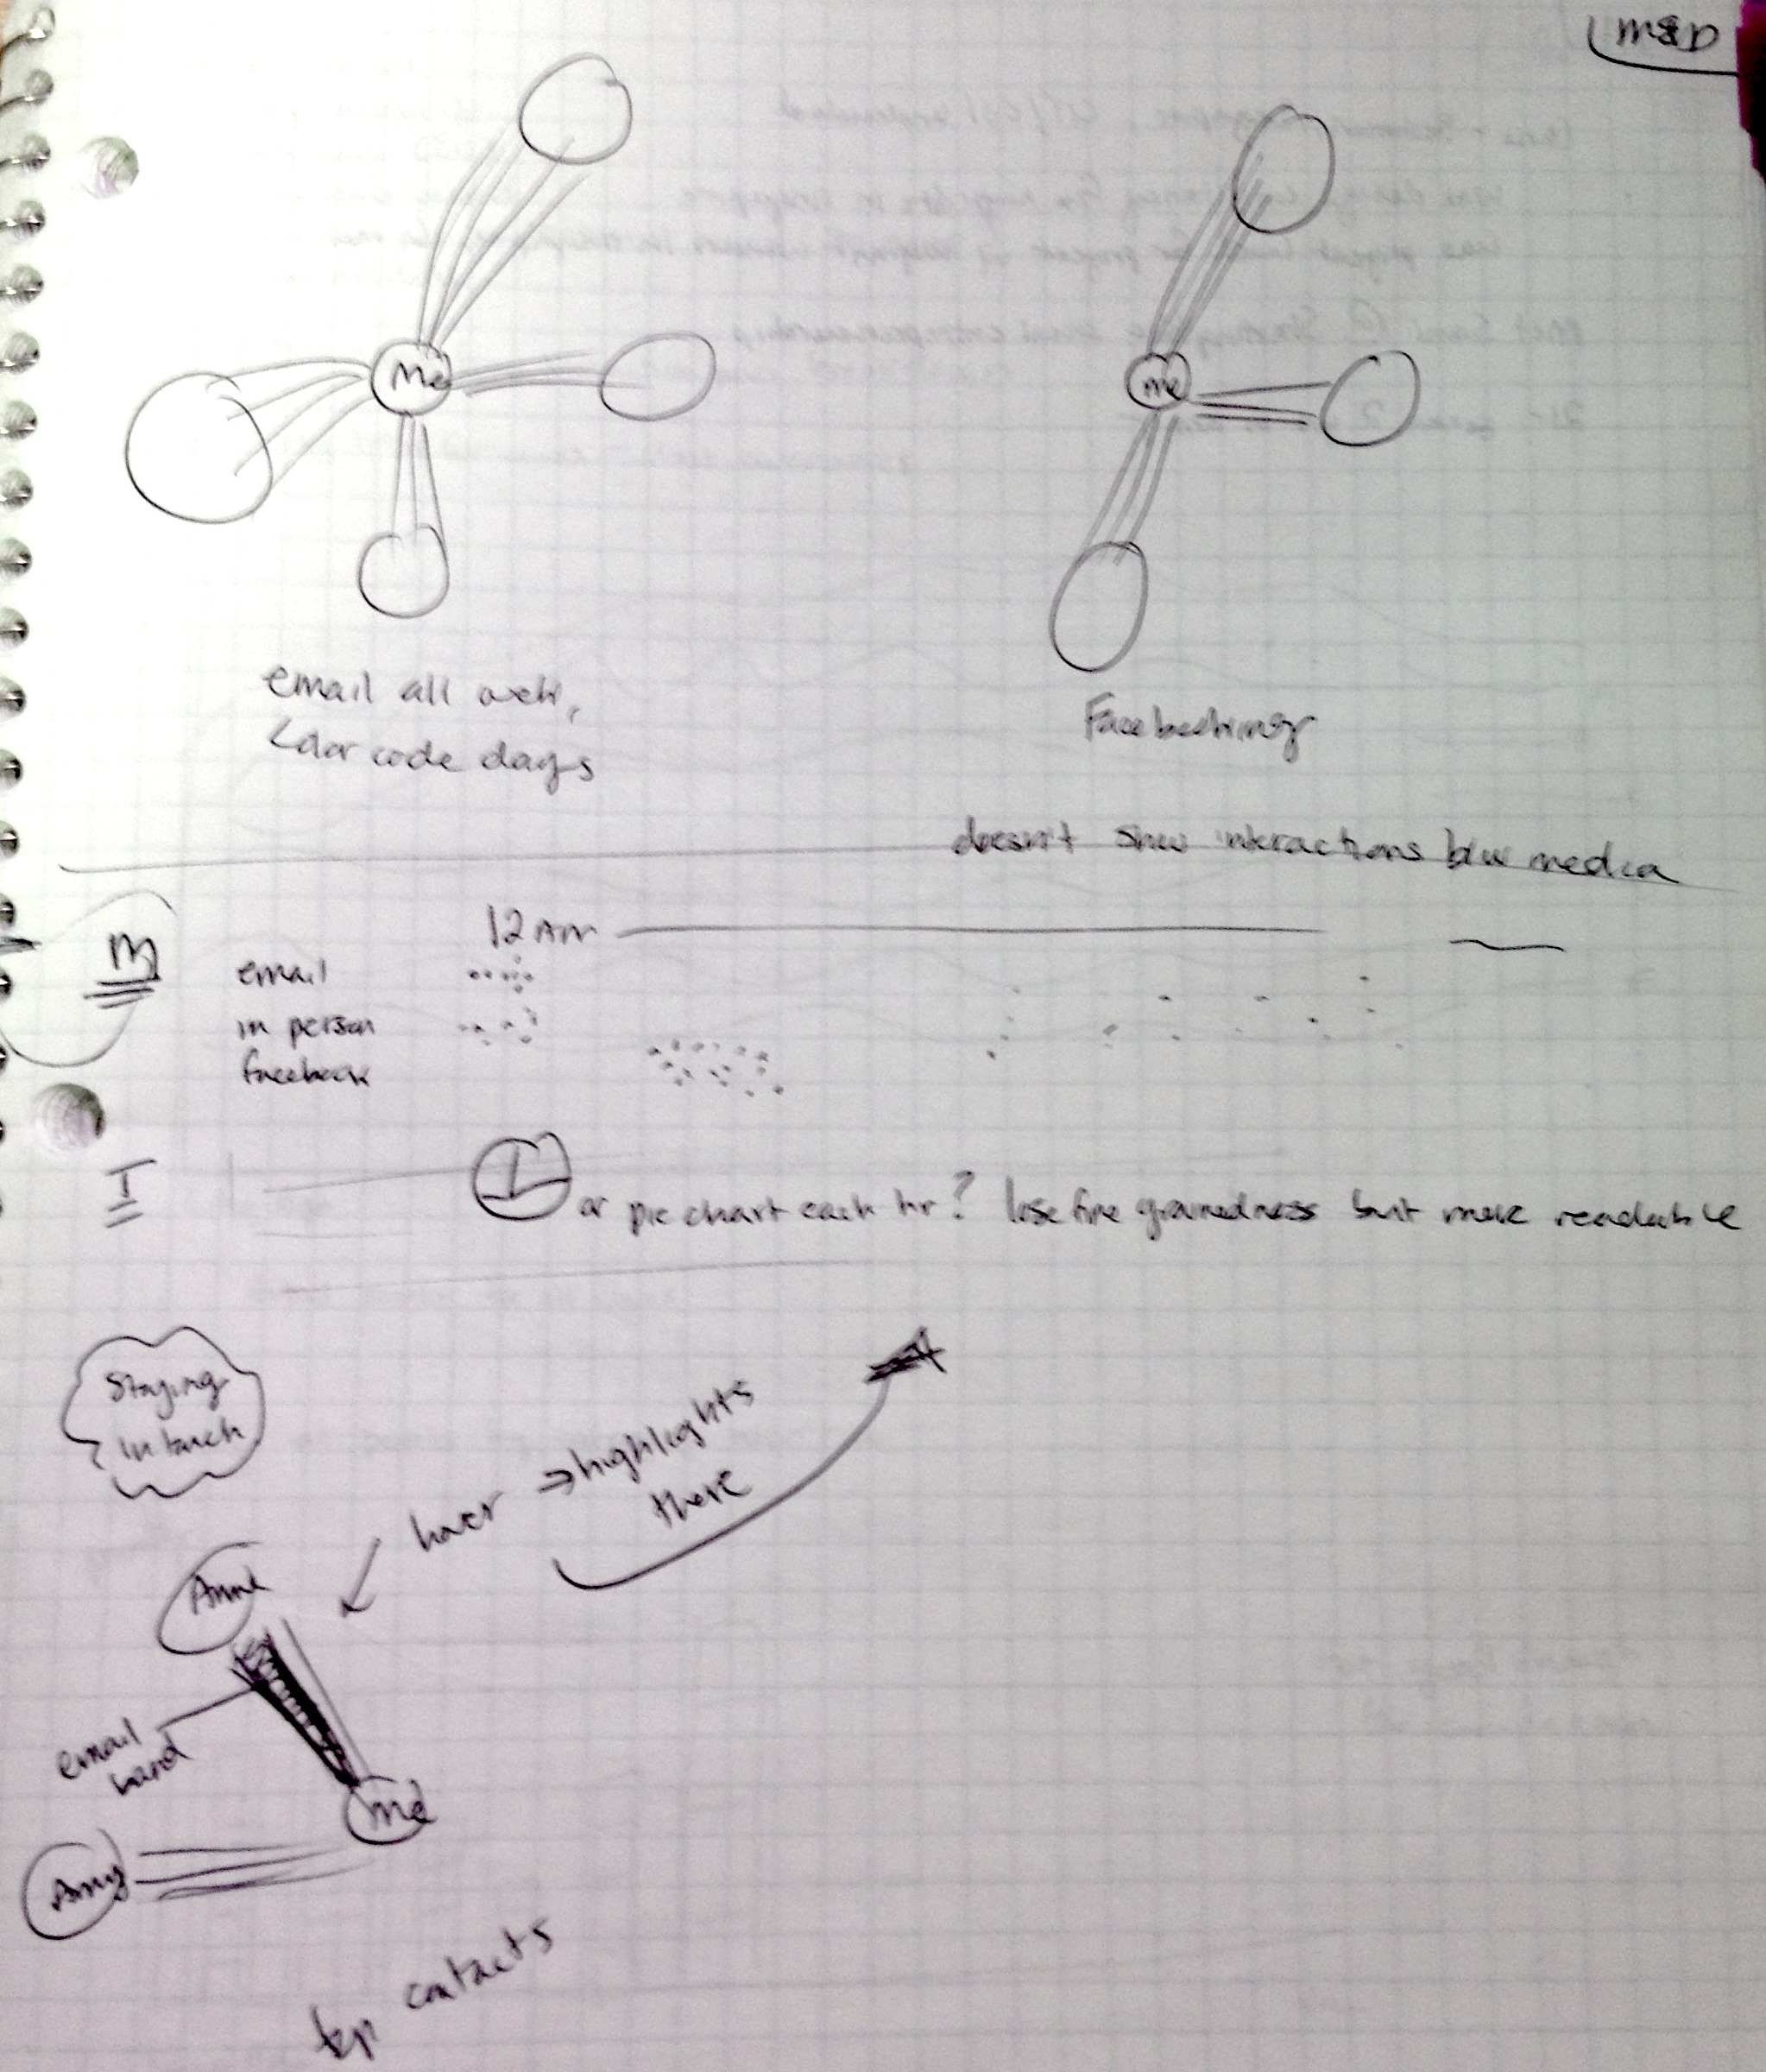 Me
me
email all week,
Color code days
Facebooking
doesn't show interactions b/w media
M
12 AM
email
in person
facebook
T
or pie chart each hr? lose fine grainedness but more readable
Staying
in touch
hover ⇒ highlights
there
Anne
email
band
me
Amy
top contacts